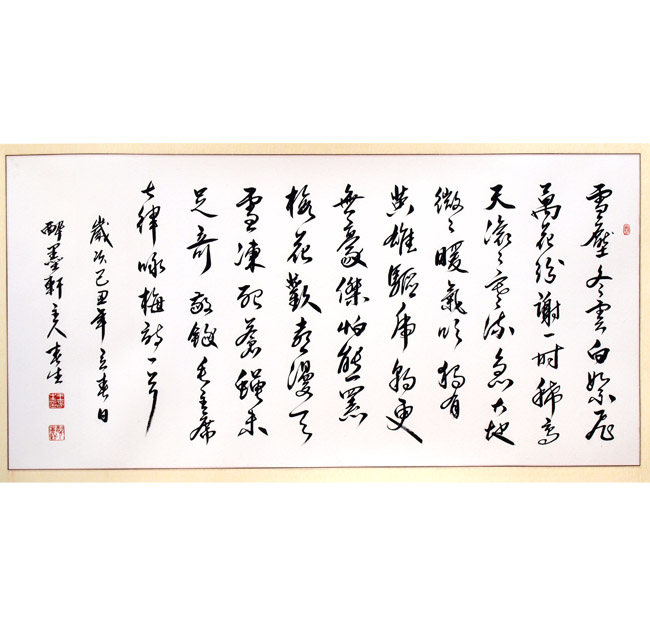 雪壓冬雲白絮飛
萬花紛謝一時稀高
天滾々寒流急大地
微々暖氣吹獨有
英雄驅虎豹更
無豪傑怕熊羆
梅花歡喜漫天
雪凍死蒼蠅未
足奇 敬錄毛主席
七律咏梅詩一首
歲次己丑年立春日
醉墨軒主人春生